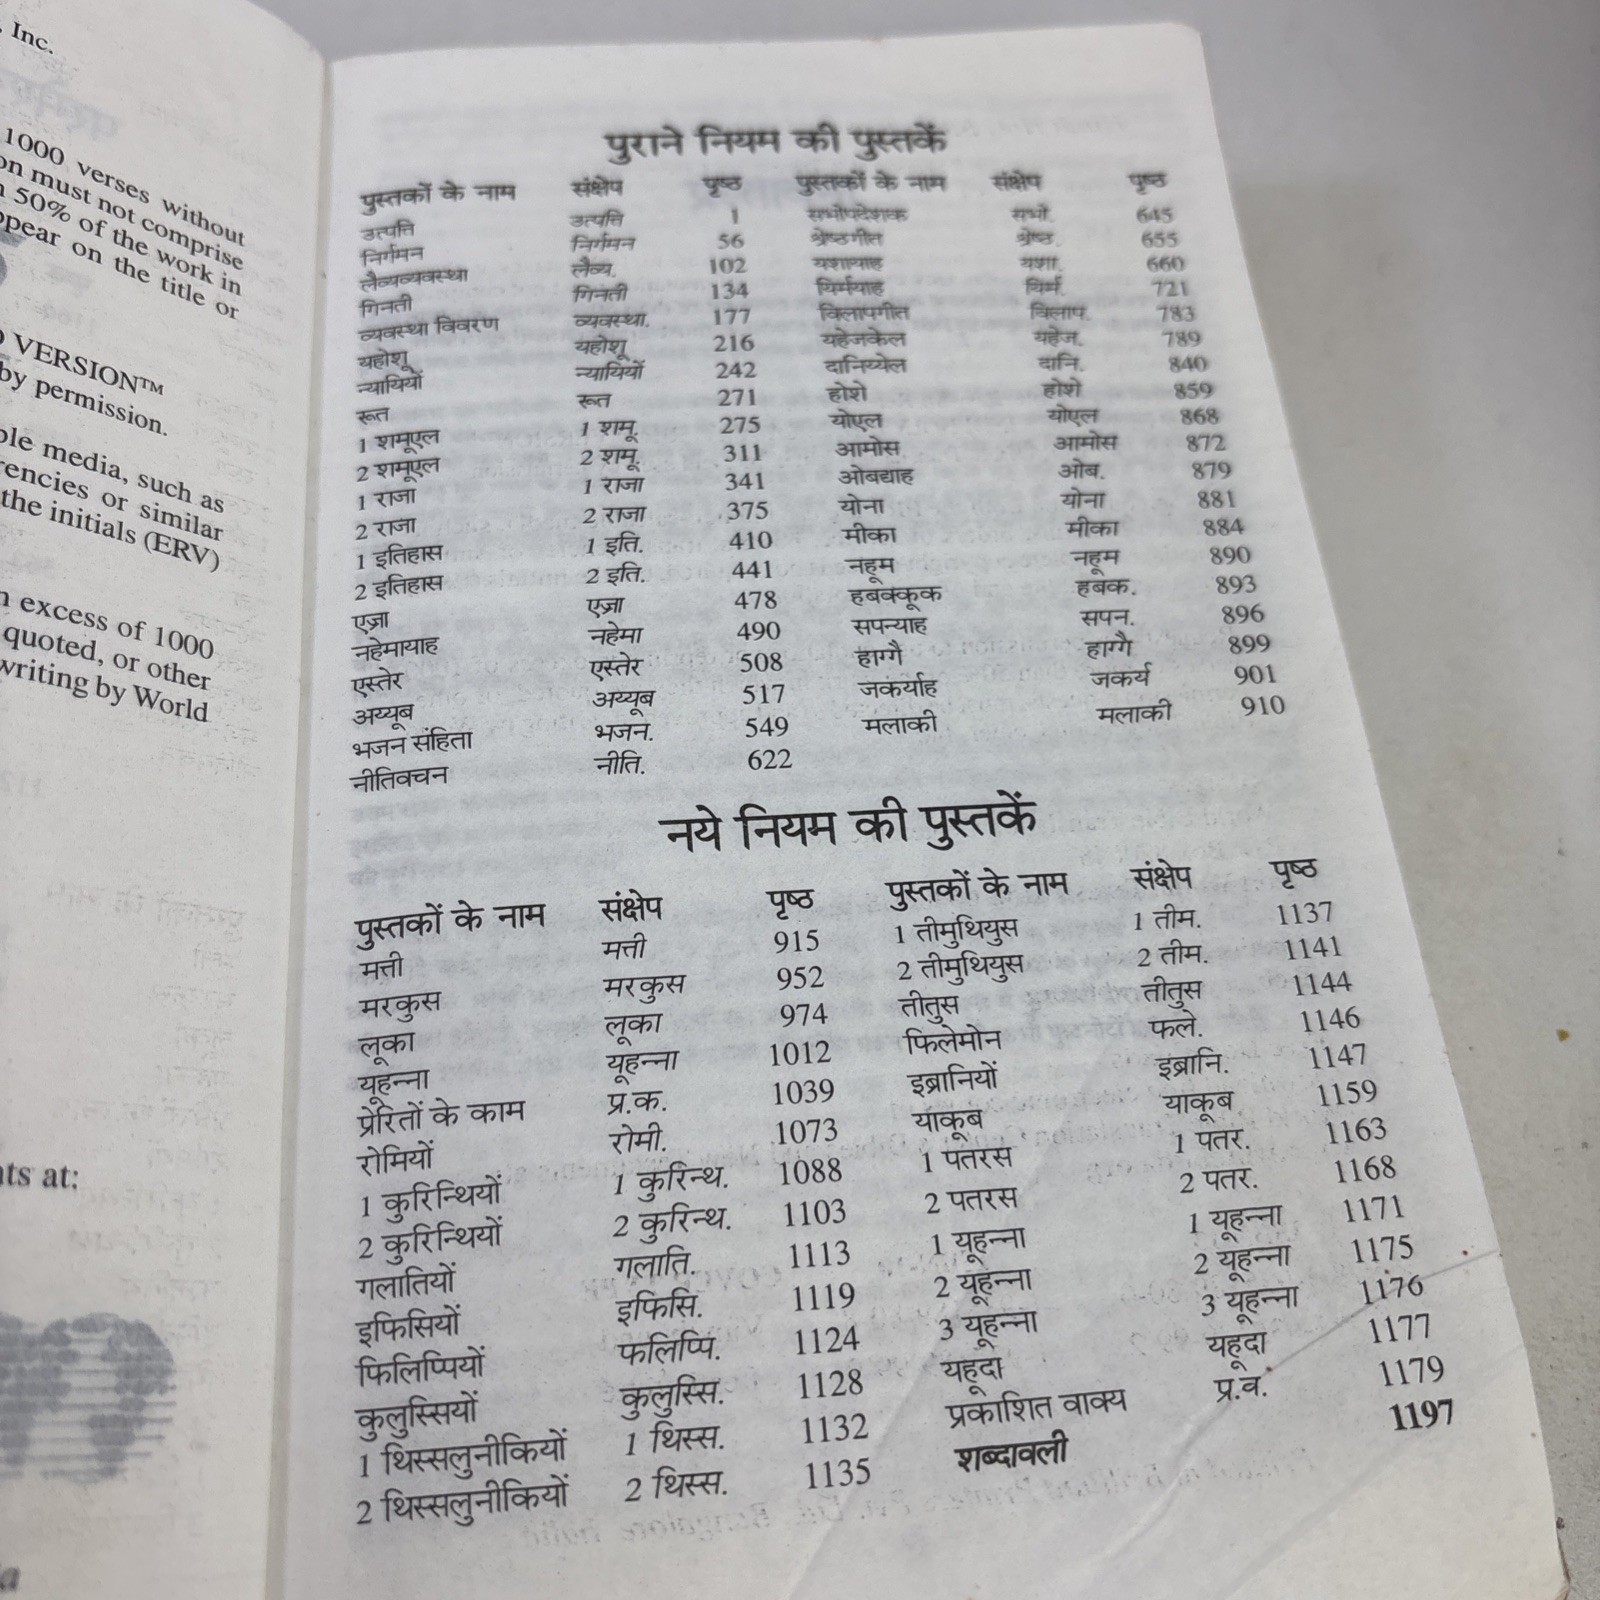 , Inc.
1000 verses without
on must not comprise
50% of the work in
ppear on the title or
VERSION™
by permission.
ble media, such as
rencies or similar
the initials (ERV)
n excess of 1000
quoted, or other
writing by World
nts at:
पुराने नियम की पुस्तकें
पुस्तकों के नाम संक्षेप पृष्ठ पुस्तकों के नाम संक्षेप पृष्ठ
उत्पत्ति उत्पत्ति 1 सभोपदेशक सभो. 645
निर्गमन निर्गमन 56 श्रेष्ठगीत श्रेष्ठ. 655
लैव्यव्यवस्था लैव्य. 102 यशायाह यशा. 660
गिनती गिनती 134 यिर्मयाह यिर्म. 721
व्यवस्था विवरण व्यवस्था. 177 विलापगीत विलाप. 783
यहोशू यहोशू 216 यहेजकेल यहेज. 789
न्यायियों न्यायियों 242 दानिय्येल दानि. 840
रूत रूत 271 होशे होशे 859
1 शमूएल 1 शमू. 275 योएल योएल 868
2 शमूएल 2 शमू. 311 आमोस आमोस 872
1 राजा 1 राजा 341 ओबद्याह ओब. 879
2 राजा 2 राजा 375 योना योना 881
1 इतिहास 1 इति. 410 मीका मीका 884
2 इतिहास 2 इति. 441 नहूम नहूम 890
एज्रा एज्रा 478 हबक्कूक हबक. 893
नहेमायाह नहेमा 490 सपन्याह सपन. 896
एस्तेर एस्तेर 508 हाग्गै हाग्गै 899
अय्यूब अय्यूब 517 जकर्याह जकर्य 901
भजन संहिता भजन. 549 मलाकी मलाकी 910
नीतिवचन नीति. 622
नये नियम की पुस्तकें
पुस्तकों के नाम संक्षेप पृष्ठ पुस्तकों के नाम संक्षेप पृष्ठ
मत्ती मत्ती 915 1 तीमुथियुस 1 तीम. 1137
मरकुस मरकुस 952 2 तीमुथियुस 2 तीम. 1141
लूका लूका 974 तीतुस तीतुस 1144
यूहन्ना यूहन्ना 1012 फिलेमोन फले. 1146
प्रेरितों के काम प्र.क. 1039 इब्रानियों इब्रानि. 1147
रोमियों रोमी. 1073 याकूब याकूब 1159
1 कुरिन्थियों 1 कुरिन्थ. 1088 1 पतरस 1 पतर. 1163
2 कुरिन्थियों 2 कुरिन्थ. 1103 2 पतरस 2 पतर. 1168
गलातियों गलाति. 1113 1 यूहन्ना 1 यूहन्ना 1171
इफिसियों इफिसि. 1119 2 यूहन्ना 2 यूहन्ना 1175
फिलिप्पियों फलिप्पि. 1124 3 यूहन्ना 3 यूहन्ना 1176
कुलुस्सियों कुलुस्सि. 1128 यहूदा यहूदा 1177
1 थिस्सलुनीकियों 1 थिस्स. 1132 प्रकाशित वाक्य प्र.व. 1179
2 थिस्सलुनीकियों 2 थिस्स. 1135 शब्दावली 1197